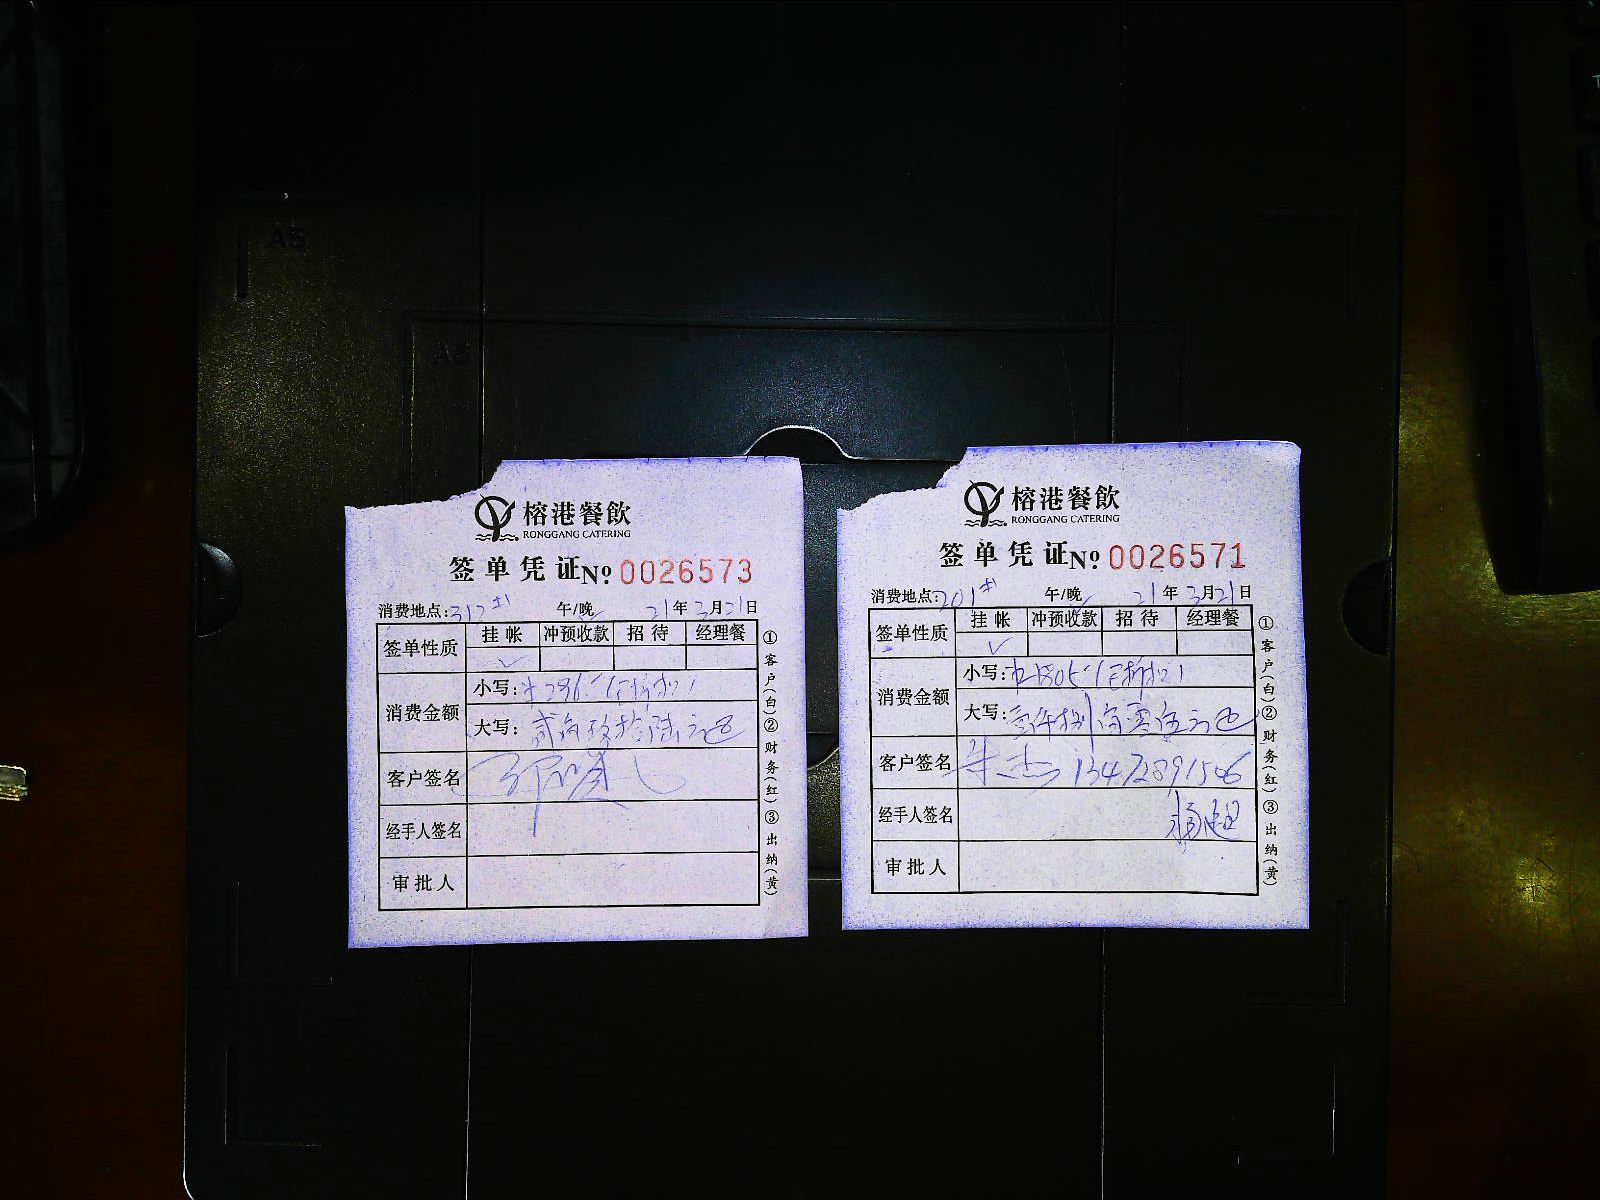 榕港餐飲
RONGGANG CATERING
签单凭证No 0026573
消费地点: 317 午/晚 21年3月21日
签单性质 挂帐 冲预收款 招待 经理餐
✓
消费金额 小写: 296
大写: 贰佰玖拾陆元
客户签名
经手人签名
审批人
①客户(白)②财务(红)③出纳(黄)
榕港餐飲
RONGGANG CATERING
签单凭证No 0026571
消费地点: 201 午/晚 21年3月21日
签单性质 挂帐 冲预收款 招待 经理餐
✓
消费金额 小写: 1805
大写: 壹仟捌佰零伍元
客户签名 朱杰 13472891546
经手人签名 杨超
审批人
①客户(白)②财务(红)③出纳(黄)
A5